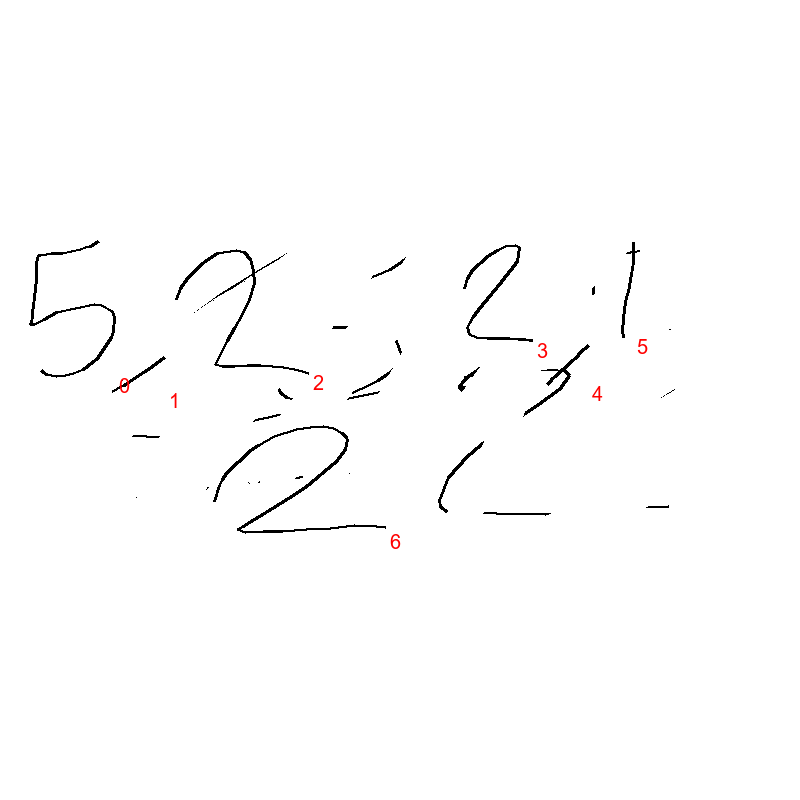 5,2 2,1
2
0 1 2 3 4 5 6